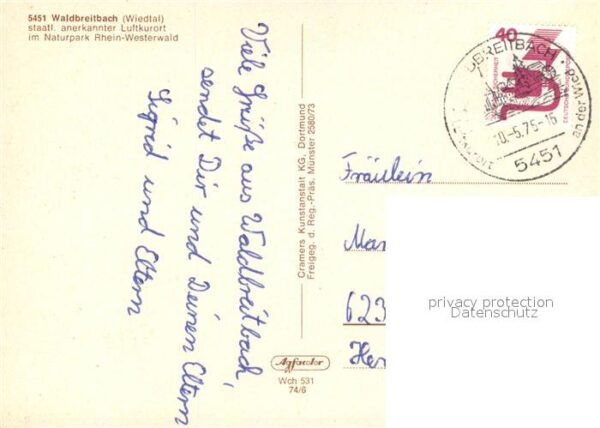 5451 Waldbreitbach (Wiedtal)
staatl. anerkannter Luftkurort
im Naturpark Rhein-Westerwald
Viele Grüße aus Waldbreitbach,
sendet Dir und Deinen Eltern
Sigrid und Eltern
Cramers Kunstanstalt KG, Dortmund
Freigeg. d. Reg.-Präs. Münster 2580/73
Agfacolor
Wch 531
74/6
40
DEUTSCHE BUNDESPOST
5451
Fräulein
623
privacy protection
Datenschutz